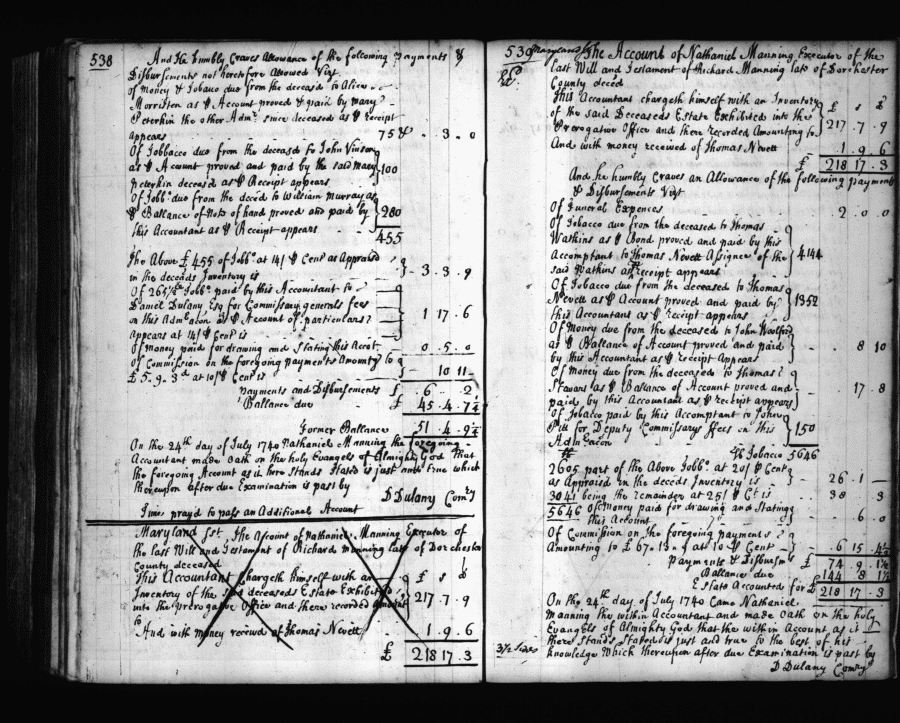 538
And He humbly Craves Allowance of the following Payments &
Disbursements not heretofore Allowed Vizt.
Of Money & Tobacco due from the deceased to
Morritten as ⅌ Account proved & paid by Mary
Peterkin the other Admx. since deceased as ⅌ receipt
appears 75 & " . 3 . 0
Of Tobbacco due from the deceased to John Vinson
as ⅌ Account proved and paid by the said Mary
Peterkin deceased as ⅌ Receipt appears 100
Of Tobbo. due from the deced to William Murray as
⅌ Ballance of Note of hand proved and paid by
this Accountant as ⅌ Receipt appears 280
455
The Above £ 455 of Tobbo. at 14/ ⅌ Cent as Appraisd
in the deceds Inventory is - 3 . 3 . 9
Of 265½ Tobbo. paid by this Accountant to
Daniel Dulany Esq for Commissary generals fees
on this Admeneon as ⅌ Account of particulars
appears at 14/ ⅌ Cent is 1 17 . 6
Of Money paid for drawing and stating this Accot. 0 . 5 . 0
Of Commission on the foregoing payments Amountg to
£ 5 . 9 . 3d at 10/ ⅌ Cent is - 10 11 -
Payments and Disbursements £ . 6 . . 2
Ballance due £ 45 . 4 . 7½
Former Ballance 51 . 4 . 9½
On the 24th day of July 1740 Nathaniel Manning the foregoing
Accountant made Oath on the holy Evangels of Almighty God that
the foregoing Account as it here Stands Stated is just and true which
thereupon after due Examination is past by
D Dulany Comry
Time prayd to pass an Additional Account
Maryland sst. The Account of Nathaniel Manning Executor of
the last Will and Testament of Richard Manning late of Dorchester
County deceased
This Accountant Chargeth himself with an £ s d
Inventory of the said deceaseds Estate Exhibited
into the Prerogative Office and there recorded Amount
to 217 . 7 . 9
And with Money received of Thomas Nevett . 1 . 9 . 6
£ 218 17 . 3
539
Maryland sst The Account of Nathaniel Manning Executor of the
last Will and Testament of Richard Manning late of Dorchester
County deced
This Accountant chargeth himself with an Inventory
of the said Deceaseds Estate Exhibited into the
Prerogative Office and there recorded Amounting to £ s d 217 . 7 . 9
And with money received of Thomas Nevett . 1 . 9 . 6
£ 218 17 . 3
And he humbly Craves an Allowance of the following payments
& Disbursements Vizt
Of Funeral Expences 2 . 0 . 0
Of Tobacco due from the deceased to Thomas
Watkins as ⅌ Bond proved and paid by this
Accomptant to Thomas Nevett Assignee of the
said Watkins as ⅌ receipt appears 4144
Of Tobacco due from the deceased to Thomas
Nevett as ⅌ Account proved and paid by
this Accountants as ⅌ receipt appears 1352
Of Money due from the deceased to John Woolford
as ⅌ Ballance of Account proved and paid
by this Accountant as ⅌ receipt Appears " 8 10
Of Money due from the deceased to Thomas
Stewars as ⅌ Balance of Account proved and
paid by this Accountant as ⅌ receipt appears 17 . 8
Of Tobacco paid by this Accomptant to John
Pitt for Deputy Commissarys ffees on this
Admeneacon 150
⅌ Tobacco 5646
2605 part of the Above Tobbo. at 20/ ⅌ Cent
as Appraisd in the deceds Inventory is - 26 . 1 —
3041 being the remainder at 25/ ⅌ Ct is 38 . 3
5646 Of Money paid for drawing and Stating
this Account . . 6 . 0
Of Commission on the foregoing payments
Amounting to £ 67 . 13 . 9 at 10 ⅌ Cent . 6 15 . 4½
Payments & Disbursmts £ 74 . 9 . 1½
Ballance due 144 8 1½
Estate Accounted for £ 218 17 . 3
On the 24th day of July 1740 Came Nathaniel
Manning the within Accountant and made Oath on the holy
Evangels of Almighty God that the within Account as it
there Stands Stated is just and true to the best of his
knowledge Which thereupon after due Examination is past by
D Dulany Comry
3½ sides